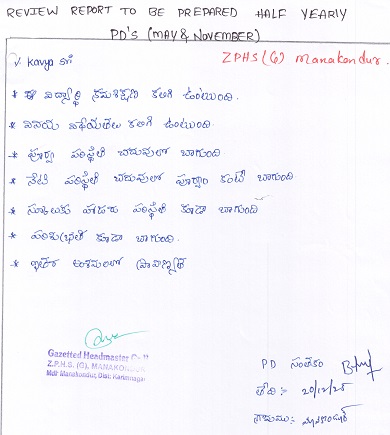 REVIEW REPORT TO BE PREPARED HALF YEARLY
PD'S (MAY & NOVEMBER)
V. Kavya Sri
ZPHS (G) Manakondur.
* ఈ విద్యార్థి క్రమశిక్షణ కలిగి ఉంటుంది.
* వినయ విధేయతలు కలిగి ఉంటుంది.
* పూర్వ పరిస్థితి చదువులో బాగుంది.
* నేటి పరిస్థితి చదువులో పూర్వం కంటే బాగుంది
* స్కూలుకు హాజరు పరిస్థితి కూడా బాగుంది
* పరిశుభ్రత కూడా బాగుంది.
* ఇతర అంశములలో ప్రావీణ్యత
Gazetted Headmaster
Z.P.H.S. (G), MANAKONDUR
Mdl: Manakondur, Dist: Karimnagar
PD సంతకం
తేది:- 20/12/25
గ్రామము: మానకొండూర్